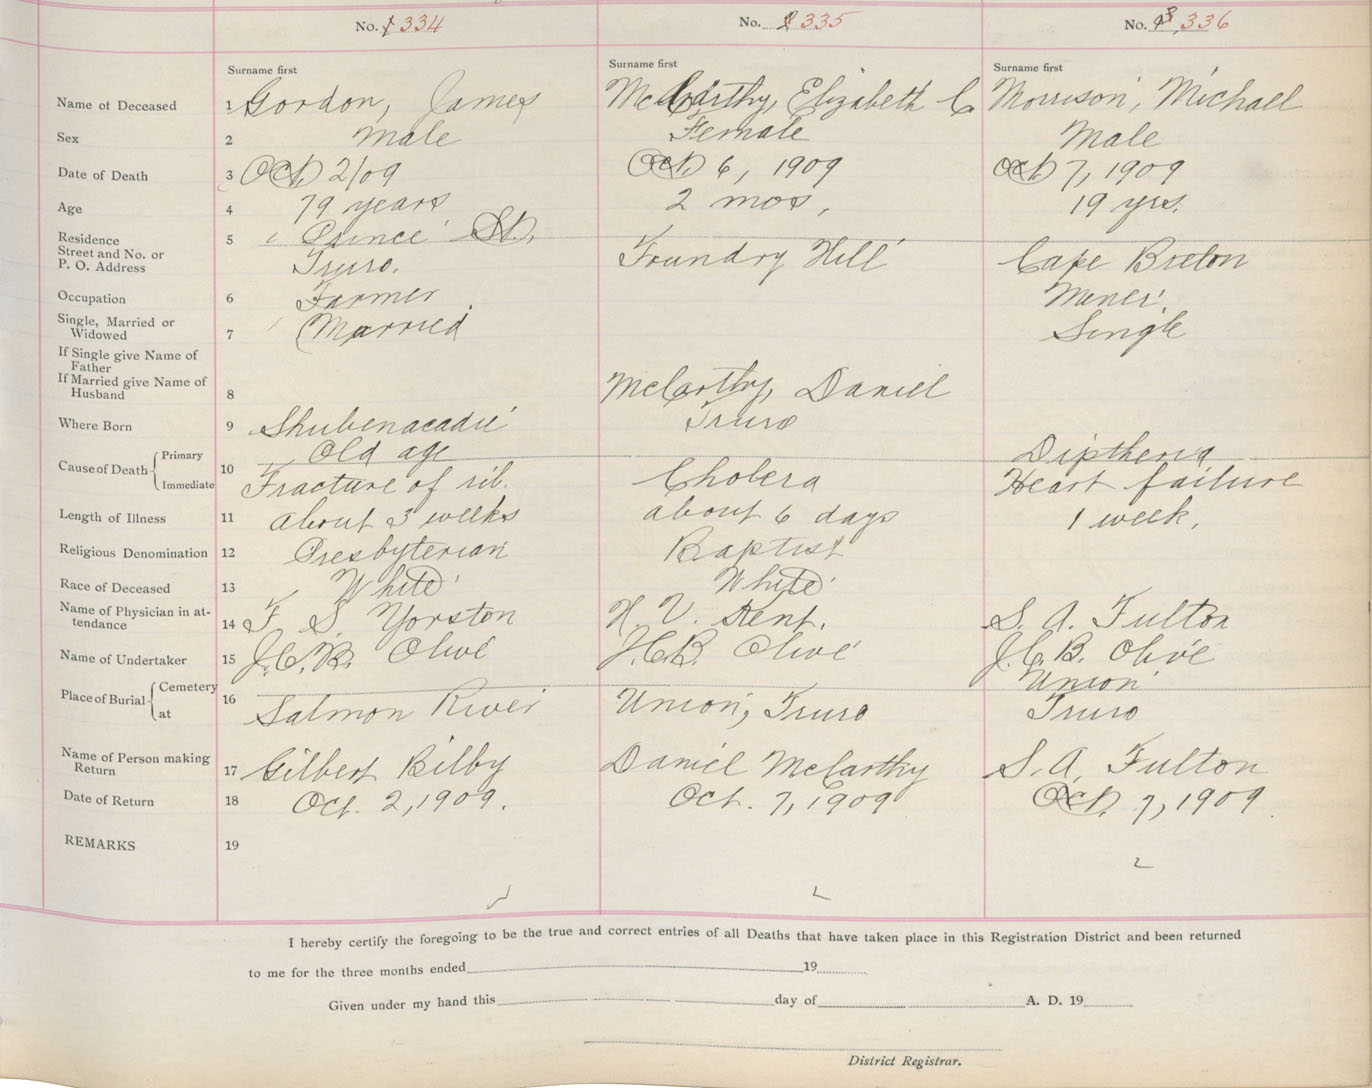 No. 1 334 No. 2 335 No. 3 336
Surname first Surname first Surname first
Name of Deceased 1 Gordon, James McCarthy, Elizabeth C Morrison, Michael
Sex 2 Male Female Male
Date of Death 3 Oct. 2/09 Oct. 6, 1909 Oct 7, 1909
Age 4 79 years 2 mos, 19 yrs.
Residence 5 Prince St.
Street and No. or
P. O. Address Truro. Foundry Hill Cape Breton
Occupation 6 Farmer Miner
Single, Married or
Widowed 7 Married Single
If Single give Name of
Father
If Married give Name of
Husband 8 McCarthy, Daniel
Where Born 9 Shubenacadie Truro
Cause of Death Primary 10 Old age Diptheria
Immediate Fracture of rib. Cholera Heart failure
Length of Illness 11 About 3 weeks about 6 days 1 week,
Religious Denomination 12 Presbyterian Baptist
Race of Deceased 13 White White
Name of Physician in at-
tendance 14 F. S. Yorston H. V. Kent. S. A. Fulton
Name of Undertaker 15 J.C.B. Olive J.C.B. Olive J.C.B. Olive
Place of Burial Cemetery 16 Union
at Salmon River Union, Truro Truro
Name of Person making
Return 17 Gilbert Bilby Daniel McCarthy S. A, Fulton
Date of Return 18 Oct. 2, 1909. Oct. 7, 1909 Oct. 7, 1909.
REMARKS 19
I hereby certify the foregoing to be the true and correct entries of all Deaths that have taken place in this Registration District and been returned
to me for the three months ended 19
Given under my hand this day of A. D. 19
District Registrar.